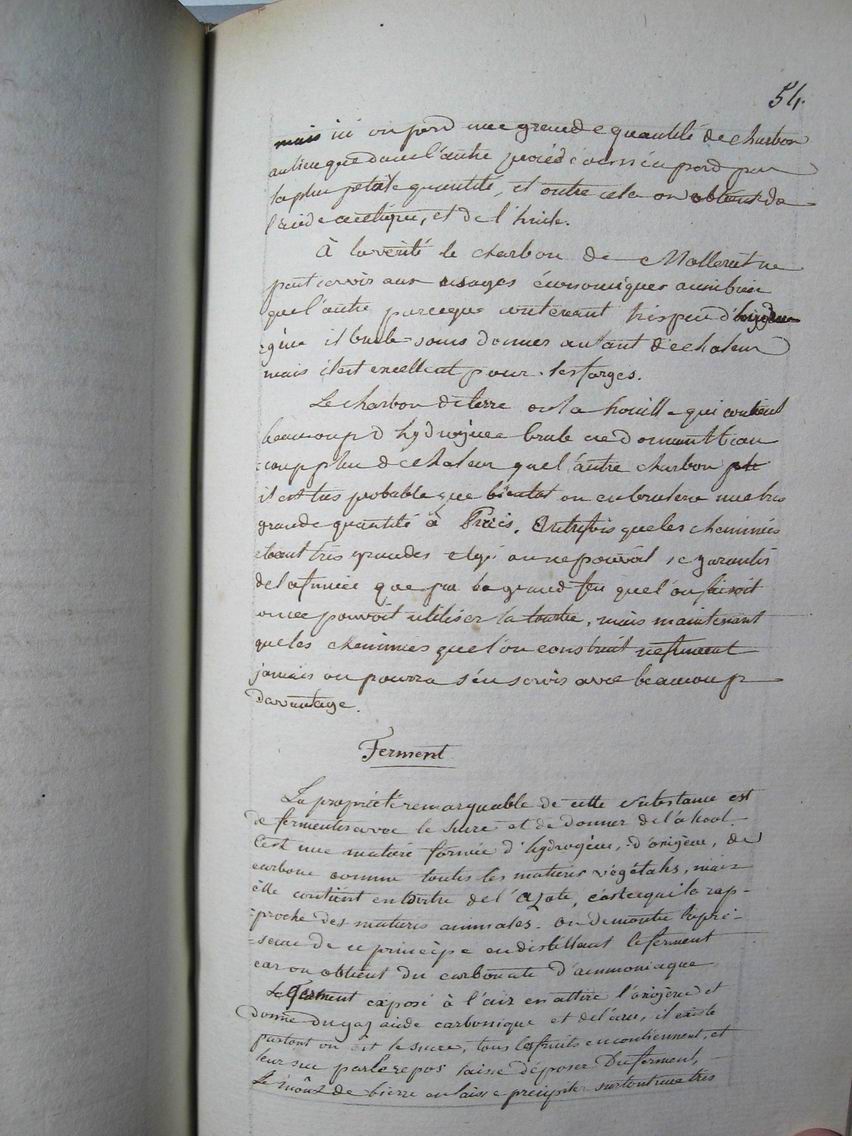 54.
mais ici on perd une grande quantité de charbon
aulieu que dans l'autre procédé on n'en perd pas
la plus petite quantité, et outre cela on obtient de
l'acide acétique, et de l'huile.
À la verité le charbon de Mollerat ne
peut servir aux usages économiques aussi bien
que l'autre parceque contenant très peu d'hydro
gène il brule sans donner autant de chaleur
mais il est excellent pour les forges.
Le charbon de terre ou la houille qui contient
beaucoup d'hydrogène brule en donnant beau
coup plus de chaleur que l'autre charbon
il est très probable que bientot on en brulera une très
grande quantité à Paris. Autrefois que les cheminées
étant très grandes on ne pouvoit se garantir
de la fumée que par le grand feu que l'on faisoit
on ne pouvoit utiliser la tourbe, mais maintenant
que les cheminées que l'on construit ne fument
jamais on pourra s'en servir avec beaucoup
d'avantage.
Ferment
La propriété remarquable de cette substance est
de fermenter avec le sucre et de donner de l'alcool.
C'est une matière formée d'hydrogène, d'oxigène, de
carbone comme toutes les matières végétales, mais
elle contient en outre de l'Azote, c'est ce qui la rap-
proche des matières animales. On demontre la pré-
sence de ce principe en distillant le ferment
car on obtient du carbonate d'ammoniaque
Le Ferment exposé à l'air en attire l'oxigène et
donne du gaz acide carbonique et de l'eau, il existe
partout où est le sucre, tous les fruits en contiennent, et
leur suc par le repos laisse déposer du ferment,
Le moût de bierre en laisse précipiter surtout une très